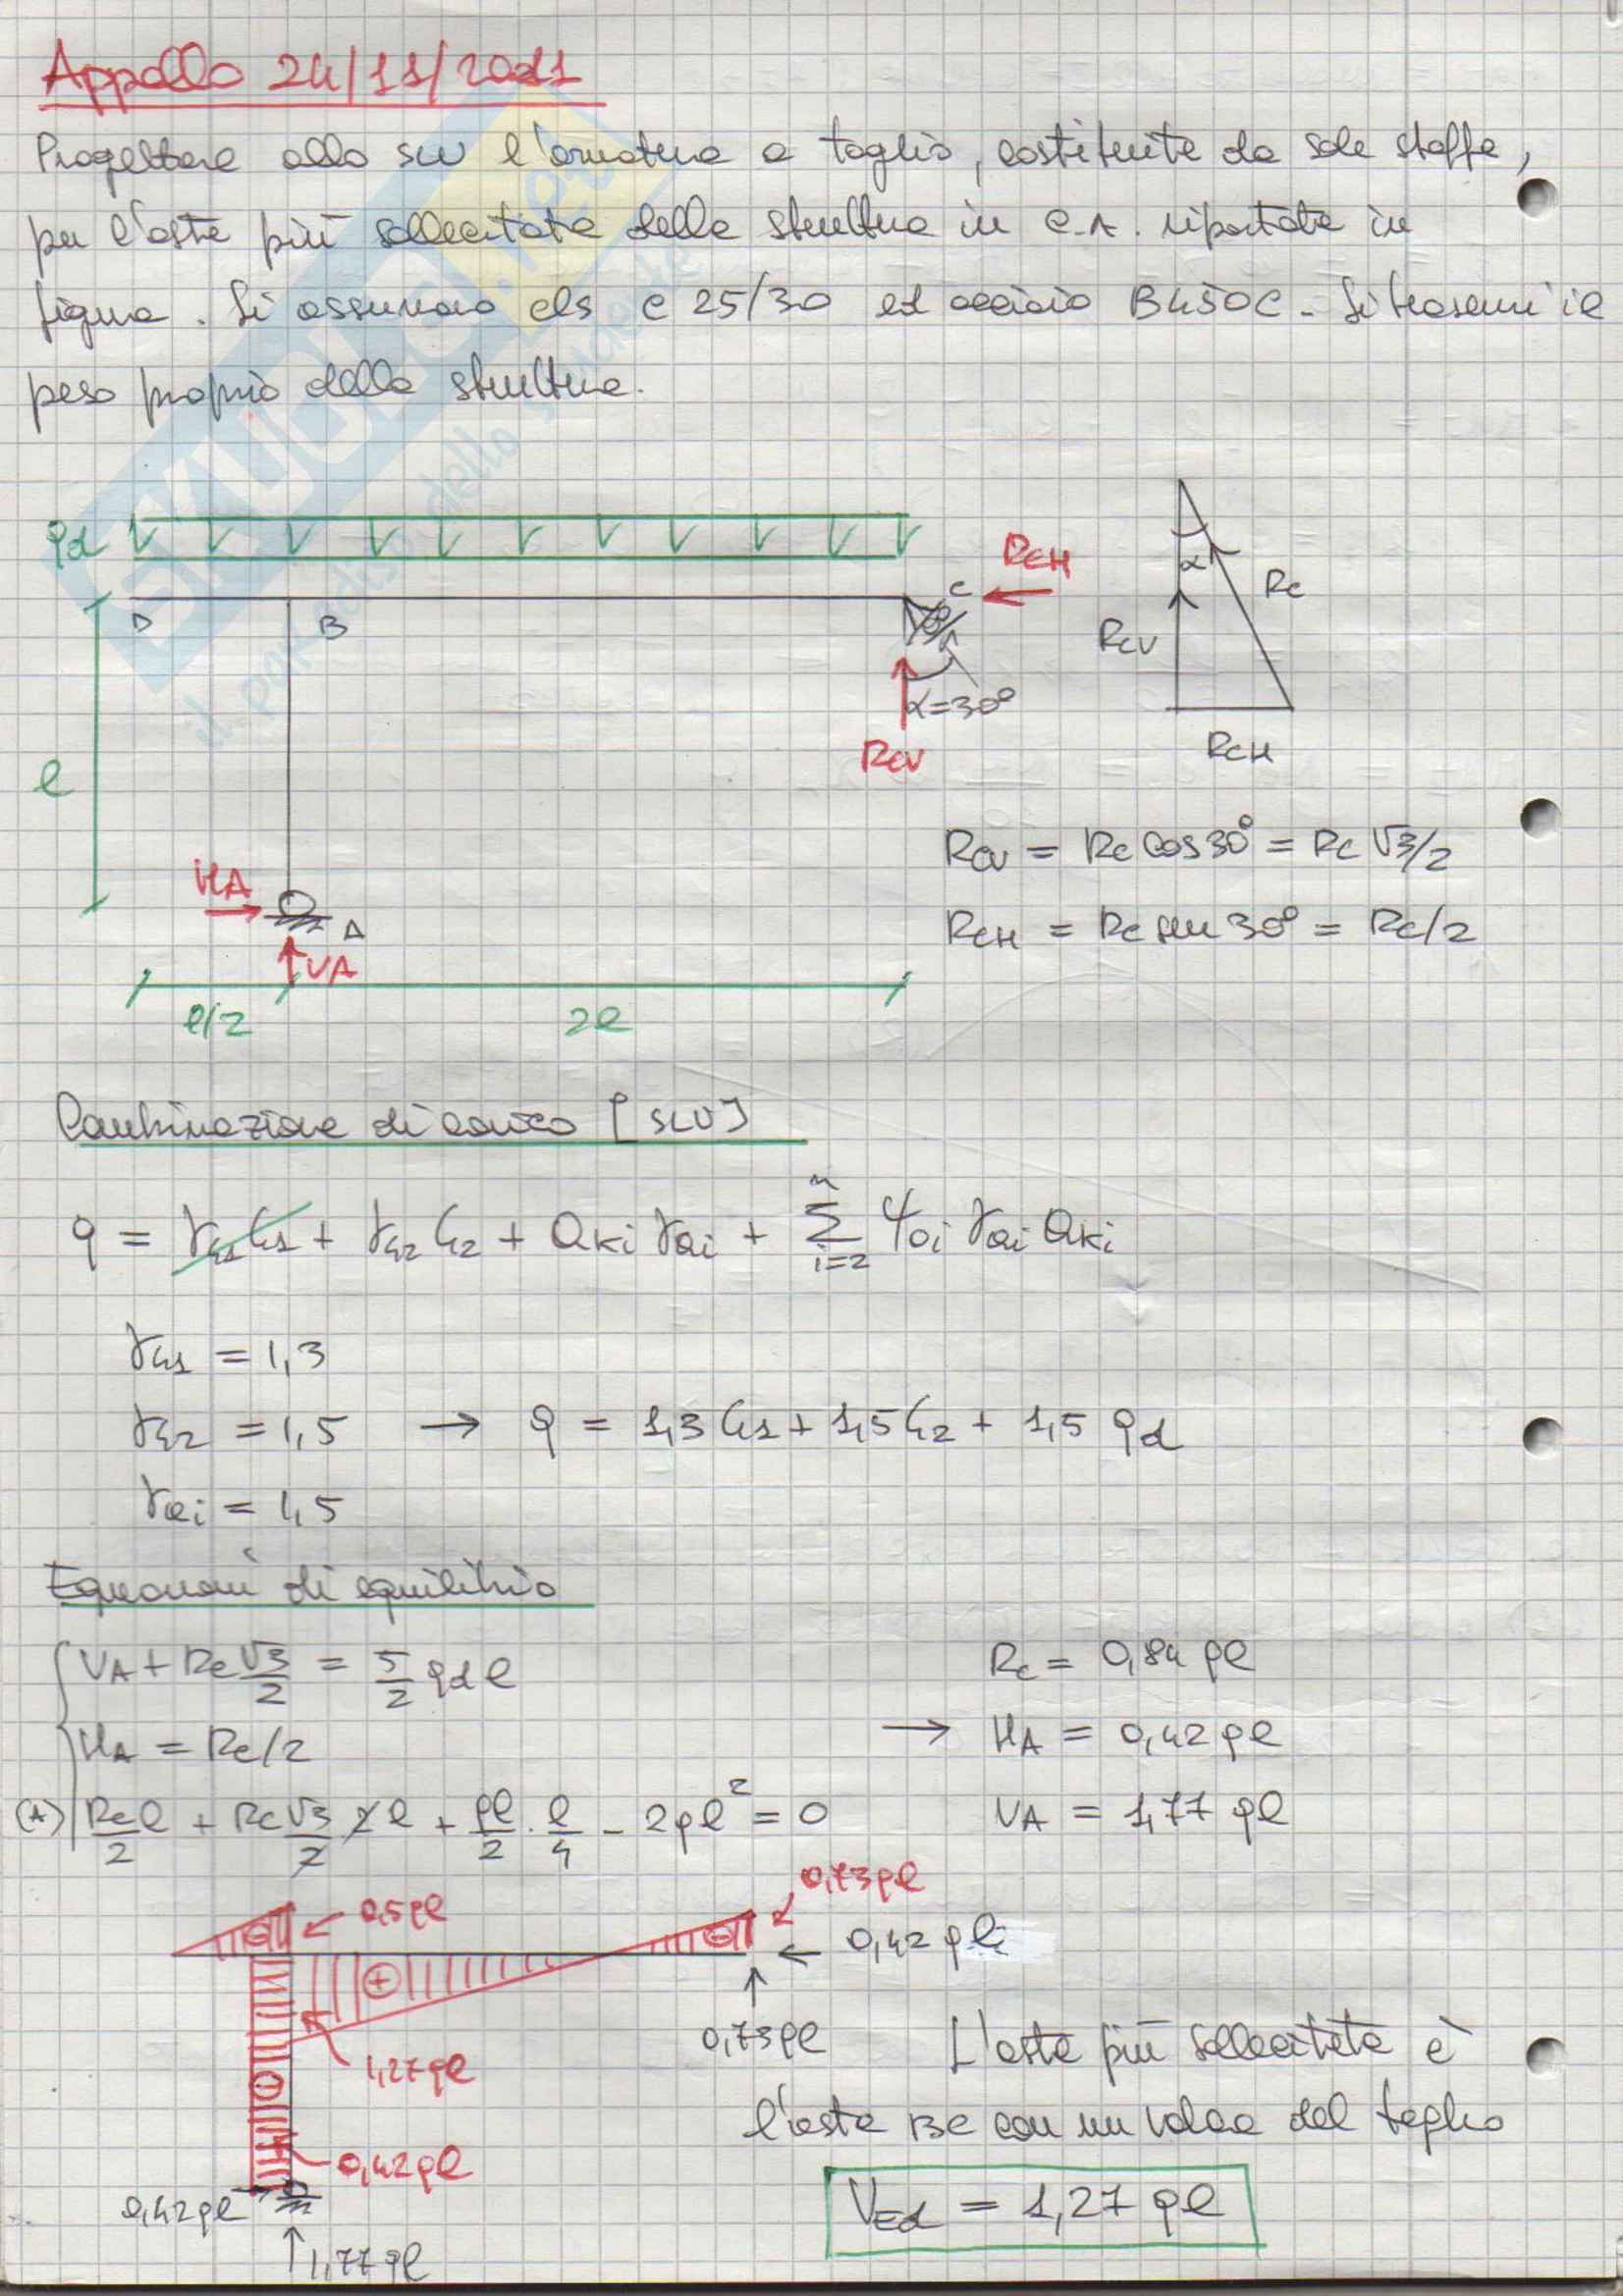 Appello 24/11/2011
Progettare allo SLU l'armatura a taglio, costituita da sole staffe,
per l'asta più sollecitata della struttura in C.A. riportata in
figura. Si assumano cls C 25/30 ed acciaio B450C. Si trascuri il
peso proprio della struttura.
qd
RCH
D
B
C
α=30°
RCV
l
HA
A
VA
l/2
2l
α
RC
RCV
RCH
RCV = RC cos30° = RC √3/2
RCH = RC sen30° = RC/2
Combinazione di carico [SLU]
q = γG1G1 + γG2 G2 + QKi γQi + Σ ψ0i γQi QKi
n
i=2
γG1 = 1,3
γG2 = 1,5 → q = 1,3 G1 + 1,5 G2 + 1,5 qd
γQi = 1,5
Equazioni di equilibrio
VA + RC √3/2 = 5/2 qd l
HA = RC/2
(A) RCl/2 + RC √3/2 2l + ql/2 · l/4 - 2ql² = 0
RC = 0,84 ql
→ HA = 0,42 ql
VA = 1,77 ql
0,5ql
0,73ql
0,42 ql
+
0,73ql
1,27ql
0,42ql
0,42ql
1,77ql
L'asta più sollecitata è
l'asta BC con un valore del taglio
VEd = 1,27 ql
SKUOLA.net
il paradiso dello studente